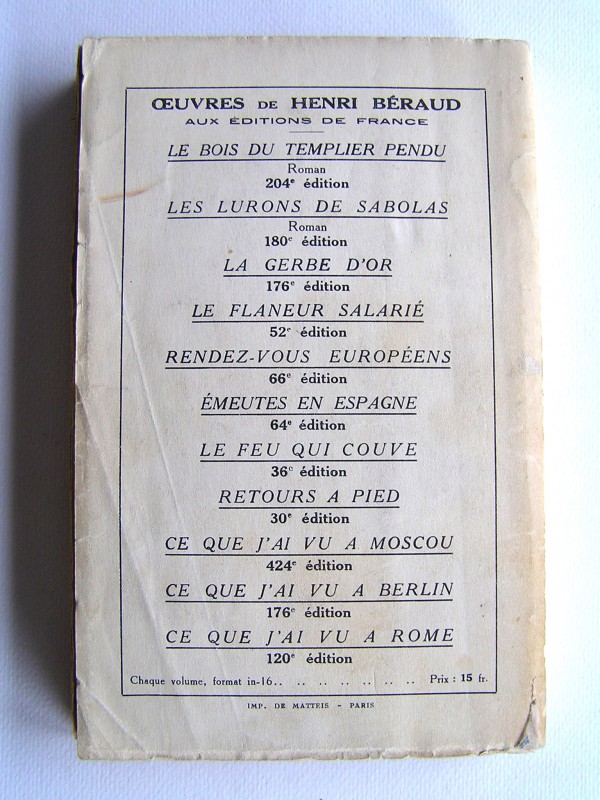 ŒUVRES DE HENRI BÉRAUD
AUX ÉDITIONS DE FRANCE
LE BOIS DU TEMPLIER PENDU
Roman
204e édition
LES LURONS DE SABOLAS
Roman
180e édition
LA GERBE D'OR
176e édition
LE FLANEUR SALARIÉ
52e édition
RENDEZ-VOUS EUROPÉENS
66e édition
ÉMEUTES EN ESPAGNE
64e édition
LE FEU QUI COUVE
36e édition
RETOURS A PIED
30e édition
CE QUE J'AI VU A MOSCOU
424e édition
CE QUE J'AI VU A BERLIN
176e édition
CE QUE J'AI VU A ROME
120e édition
Chaque volume, format in-16.. .. .. .. .. .. .. Prix : 15 fr.
IMP. DE MATTEIS - PARIS